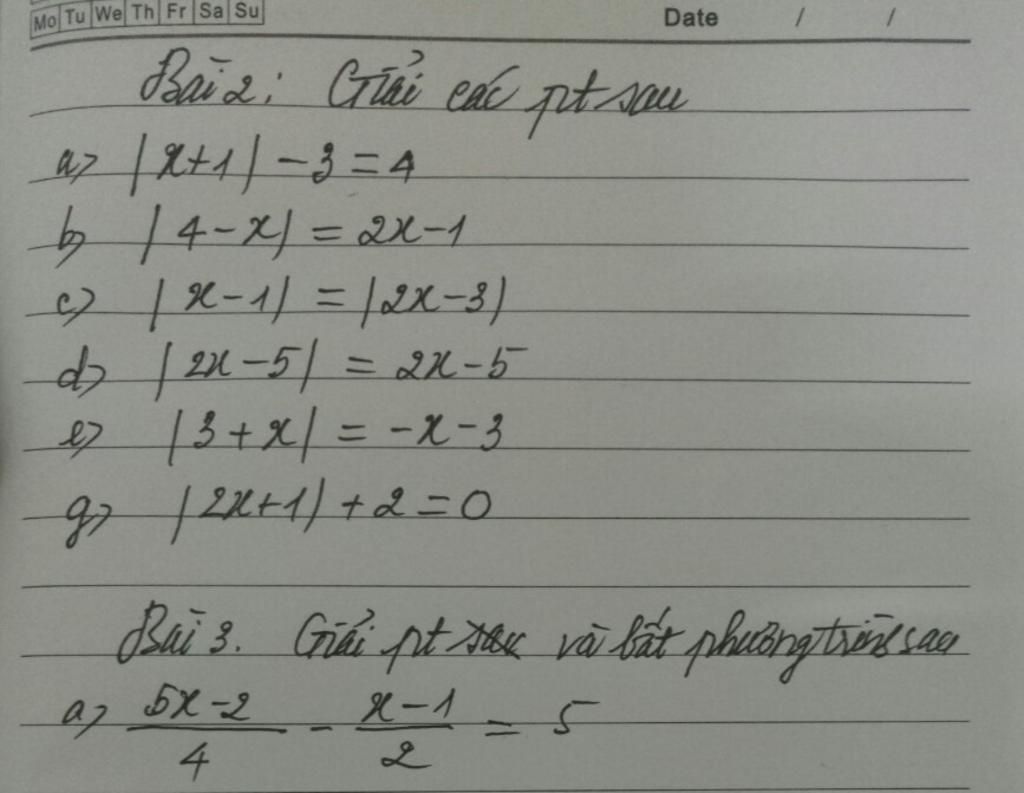 Mo Tu We Th Fr Sa Su Date / /
Bài 2: Giải các pt sau
a) |x+1| - 3 = 4
b) |4-x| = 2x-1
c) |x-1| = |2x-3|
d) |2x-5| = 2x-5
e) |3+x| = -x-3
g) |2x+1| + 2 = 0
Bài 3. Giải pt và bất phương trình sau
a) (5x-2)/4 - (x-1)/2 = 5